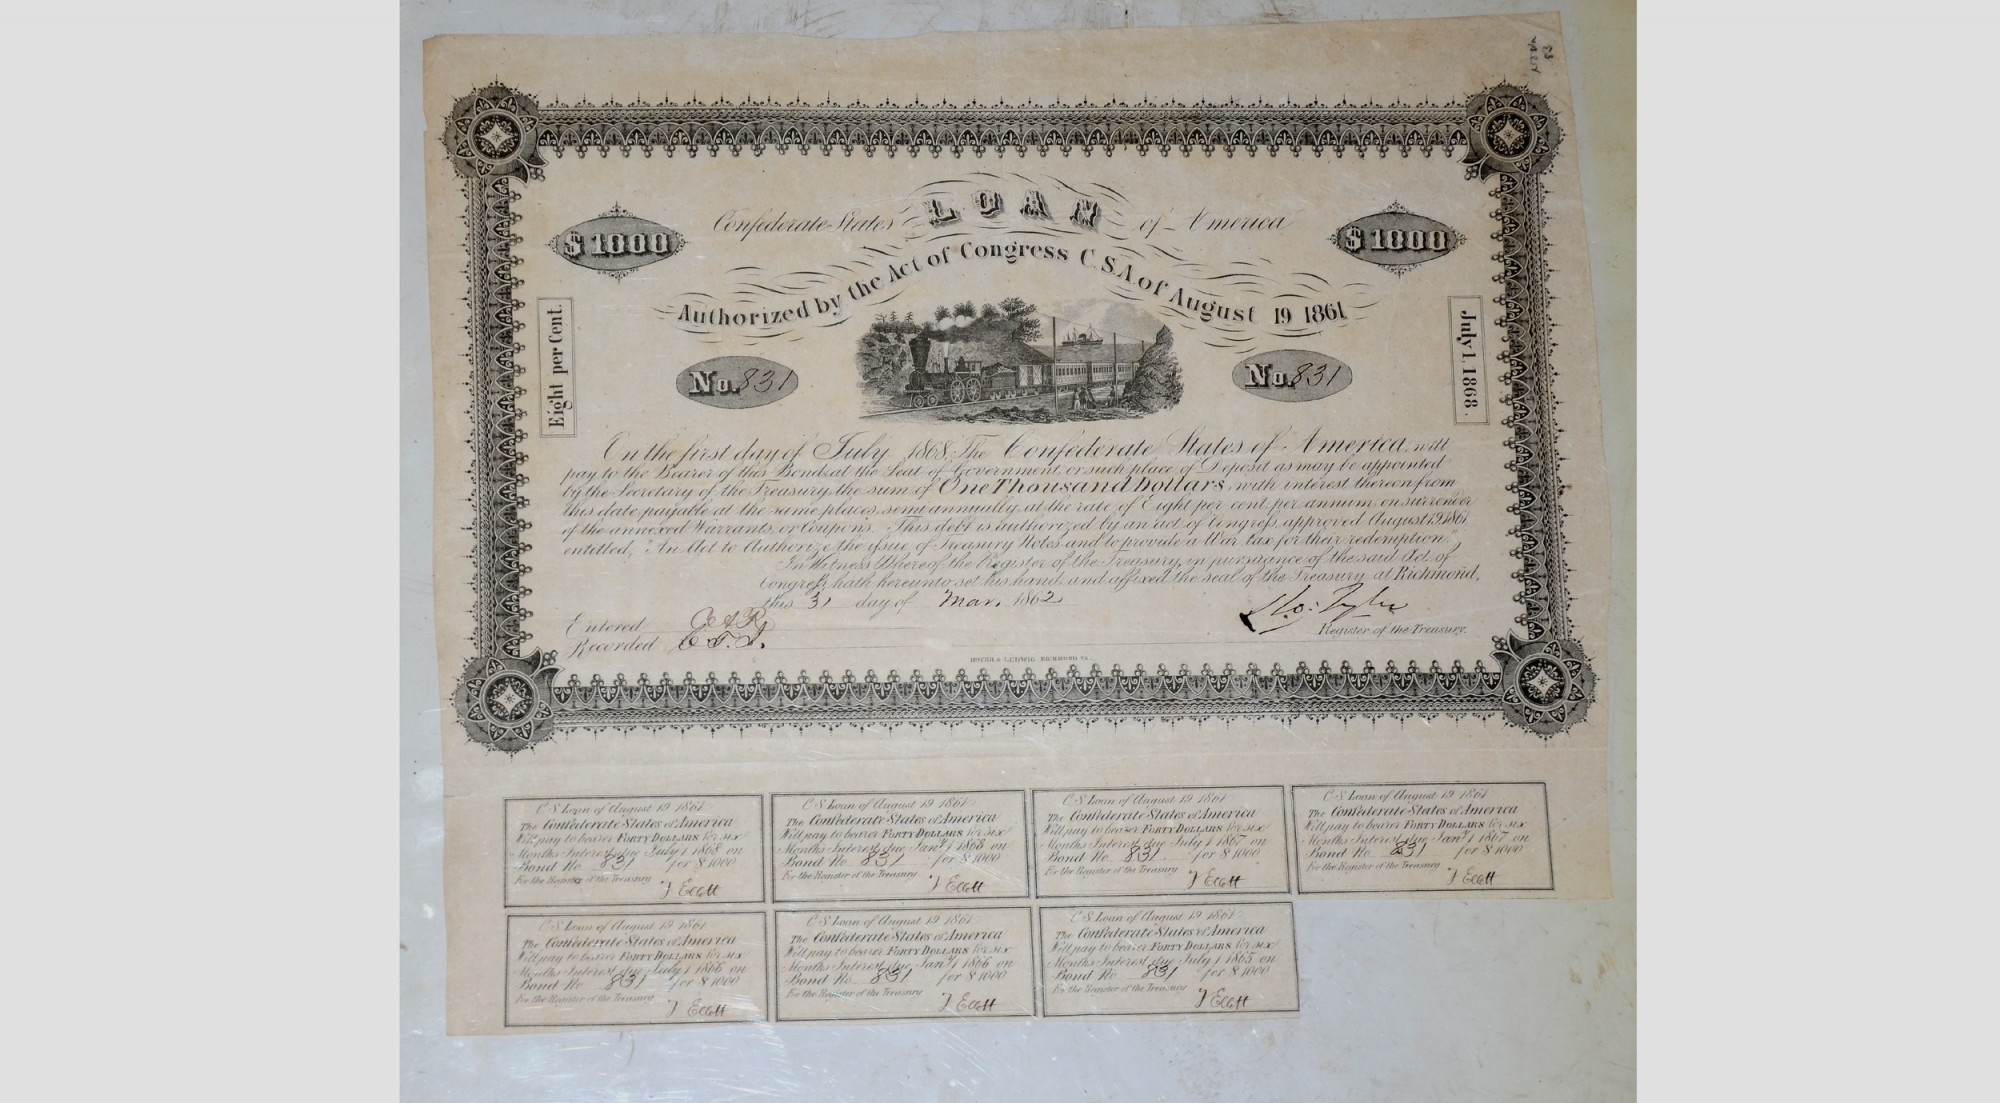 Confederate States LOAN of America
$1000
$1000
Authorized by the Act of Congress C.S.A of August 19 1861
Eight per Cent.
July 1, 1868.
No. 831
No. 831
On the first day of July 1868, The Confederate States of America, will
pay to the Bearer of this Bond, at the Seat of Government, or such place of Deposit as may be appointed
by the Secretary of the Treasury, the sum of One Thousand Dollars, with interest thereon from
this date payable at the same places, semi annually, at the rate of Eight per cent, per annum, on surrender
of the annexed Warrants, or Coupons. This debt is authorized by an act of Congress, approved August 19, 1861,
entitled, "An Act to Authorize the issue of Treasury Notes and to provide a War tax for their redemption."
In Witness Whereof the Register of the Treasury, in pursuance of the said Act of
Congress, hath hereunto set his hand, and affixed the seal of the Treasury, at Richmond,
this 31 day of Mar. 1862
Entered
Recorded
Register of the Treasury.
HOYER & LUDWIG, RICHMOND VA.
C S Loan of August 19 1861
The Confederate States of America
Will pay to bearer FORTY DOLLARS for six
Months Interest due July 1 1868 on
Bond No 831 for $ 1000
For the Register of the Treasury
J Ellett
C S Loan of August 19 1861
The Confederate States of America
Will pay to bearer FORTY DOLLARS for six
Months Interest due Jany 1 1868 on
Bond No 831 for $ 1000
For the Register of the Treasury
J Ellett
C S Loan of August 19 1861
The Confederate States of America
Will pay to bearer FORTY DOLLARS for six
Months Interest due July 1 1867 on
Bond No 831 for $ 1000
For the Register of the Treasury
J Ellett
C S Loan of August 19 1861
The Confederate States of America
Will pay to bearer FORTY DOLLARS for six
Months Interest due Jany 1 1867 on
Bond No 831 for $ 1000
For the Register of the Treasury
J Ellett
C S Loan of August 19 1861
The Confederate States of America
Will pay to bearer FORTY DOLLARS for six
Months Interest due July 1 1866 on
Bond No 831 for $ 1000
For the Register of the Treasury
J Ellett
C S Loan of August 19 1861
The Confederate States of America
Will pay to bearer FORTY DOLLARS for six
Months Interest due Jany 1 1866 on
Bond No 831 for $ 1000
For the Register of the Treasury
J Ellett
C S Loan of August 19 1861
The Confederate States of America
Will pay to bearer FORTY DOLLARS for six
Months Interest due July 1 1865 on
Bond No 831 for $ 1000
For the Register of the Treasury
J Ellett